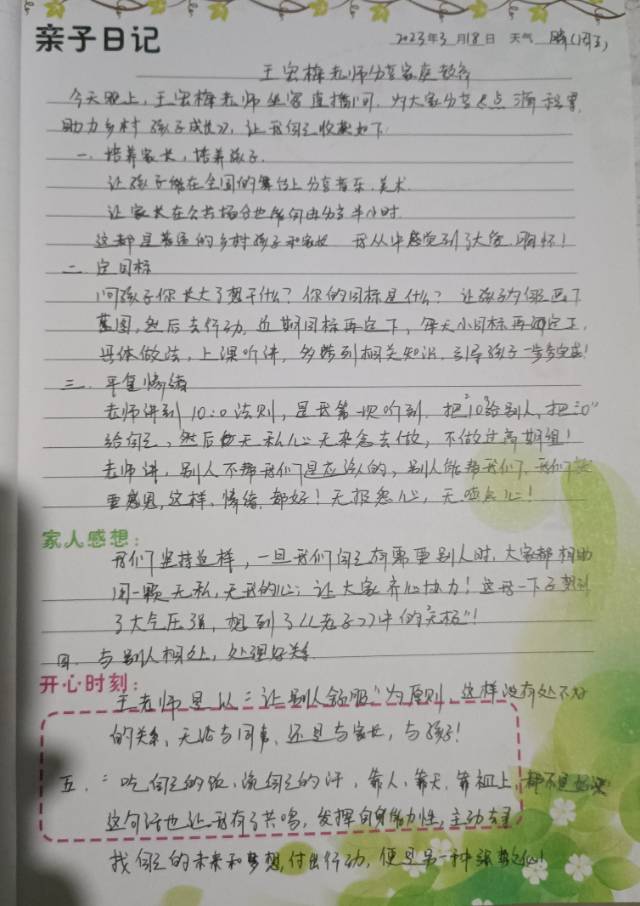 亲子日记
2023年3月18日 天气 晴(周六)
王宏梅老师分享家庭教育
今天晚上,王宏梅老师坐客直播间,为大家分享点滴
助力乡村孩子成长,让我自己收获如下
一、培养家长,培养孩子.
让孩子能在全国的舞台上分享音乐.美术.
让家长在公共场合也能自由分享半小时.
这都是普通的乡村孩子和家长 我从中感觉到了大爱.胸怀!
二 定目标
问孩子你长大了想干什么?你的目标是什么? 让孩子为他画下
蓝图,然后去行动,近期目标再定下,每天小目标再确定下,
具体做法,上课听讲,多练到相关知识.引导孩子一步步完成!
三.平复情绪
老师讲到10:0法则,是我第一次听到.把"10"给别人,把"0"
给自己,然后每天无私心无杂念去做,不做过高期望!
老师讲,别人不帮我们是应该的,别人能帮我们,我们
要感恩,这样,情绪.都好!无报怨心,无 心!
家人感想:
我们坚持这样,一旦我们自己有需要别人时,大家都相助
用一颗无私,无我的心;让大家齐心协力!这我一下子想到
了大气压强,想到了《老子》中的"无极"!
四.与别人相处,处理好关系
开心时刻:
王老师是以"让别人舒服"为原则.这样没有处不好
的关系,无论与同事.还是与家长,与孩子!
五."吃自己的饭,流自己的汗,靠人,靠天,靠祖上,都不是好汉
这句话也让我有了共鸣,发挥自身能力性,主动去寻
找自己的未来和梦想,付出行动,便是另一种